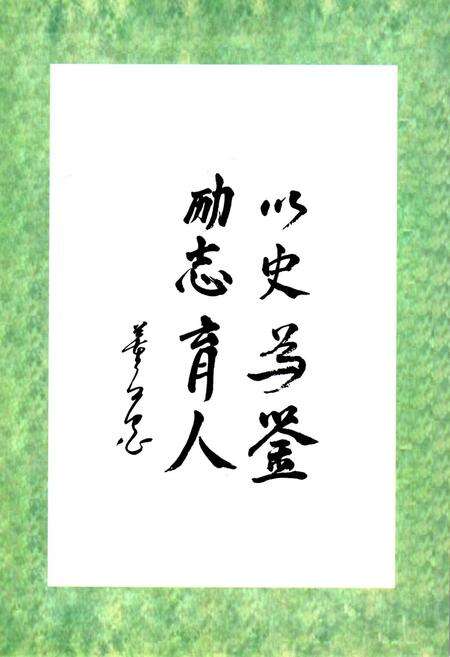 以史为鉴
励志育人